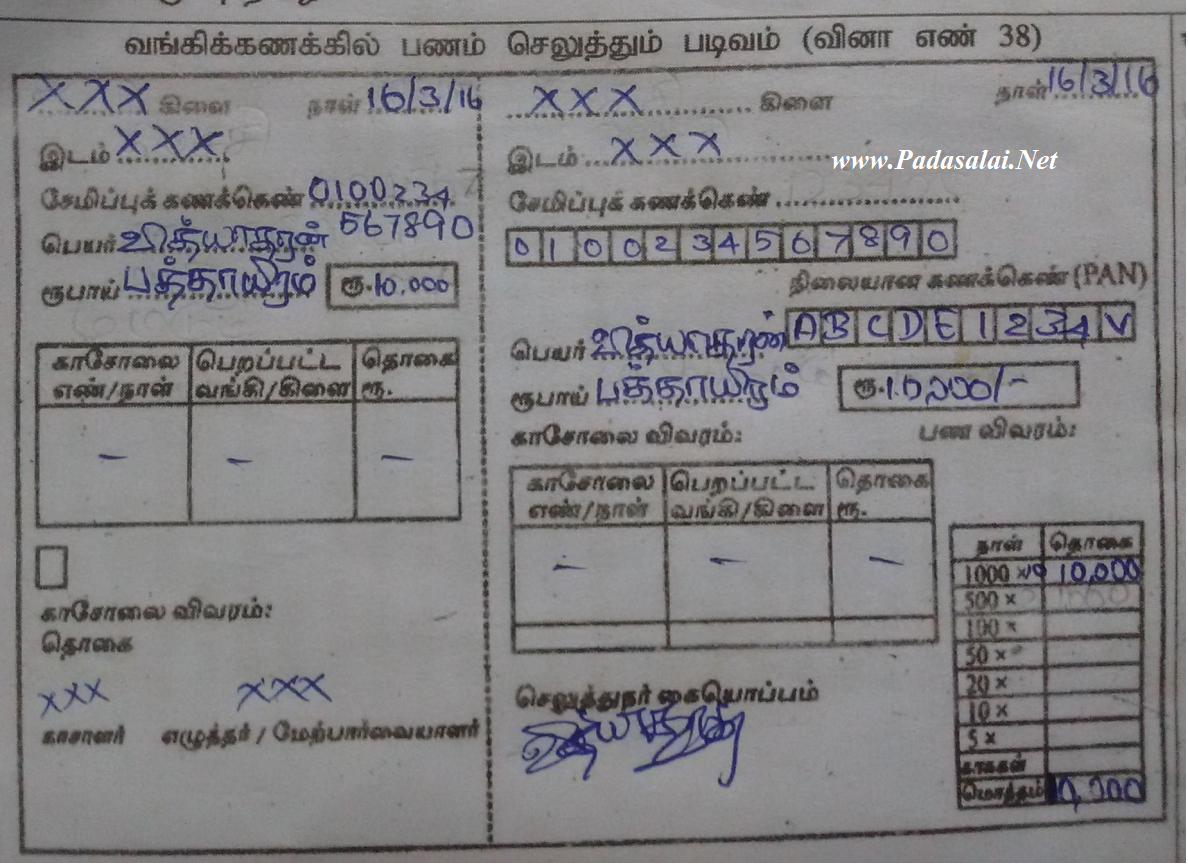 வங்கிக்கணக்கில் பணம் செலுத்தும் படிவம் (வினா எண் 38)
XXX கிளை நாள் 16/3/16
இடம் XXX
சேமிப்புக் கணக்கெண் 0100234
567890
பெயர் வித்யாதரன்
ரூபாய் பத்தாயிரம் ரூ.10.000
காசோலை எண்/நாள் பெறப்பட்ட வங்கி/கிளை தொகை ரூ.
– – –
காசோலை விவரம்:
தொகை
XXX XXX
காசாளர் எழுத்தர் / மேற்பார்வையாளர்
XXX கிளை நாள் 16/3/16
இடம் XXX
www.Padasalai.Net
சேமிப்புக் கணக்கெண்
0 1 0 0 2 3 4 5 6 7 8 9 0
நிலையான கணக்கெண் (PAN)
பெயர் வித்யாதரன் A B C D E 1 2 3 4 V
ரூபாய் பத்தாயிரம் ரூ.10,000/-
காசோலை விவரம்: பண விவரம்:
காசோலை எண்/நாள் பெறப்பட்ட வங்கி/கிளை தொகை ரூ.
– – –
செலுத்துநர் கையொப்பம்
நாள் தொகை
1000 × 10 10,000
500 ×
100 ×
50 ×
20 ×
10 ×
5 ×
மொத்தம் 10,000